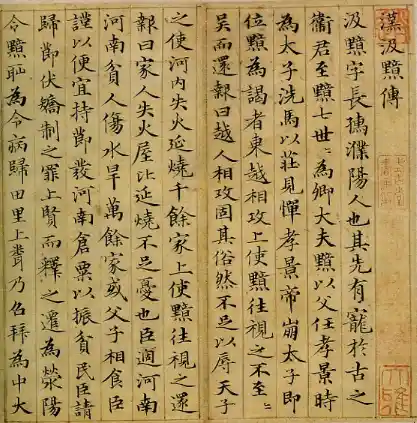 漢汲黯傳
汲黯字長孺濮陽人也其先有寵於古之
衞君至黯七世〻為卿大夫黯以父任孝景時
為太子洗馬以莊見憚孝景帝崩太子即
位黯為謁者東越相攻上使黯往視之不至〻
吳而還報曰越人相攻固其俗然不足以辱天子
之使河內失火延燒千餘家上使黯往視之還
報曰家人失火屋比延燒不足憂也臣過河南
河南貧人傷水旱萬餘家或父子相食臣
謹以便宜持節發河南倉粟以振貧民臣請
歸節伏矯制之罪上賢而釋之遷為滎陽
令黯恥為令病歸田里上聞乃召拜為中大